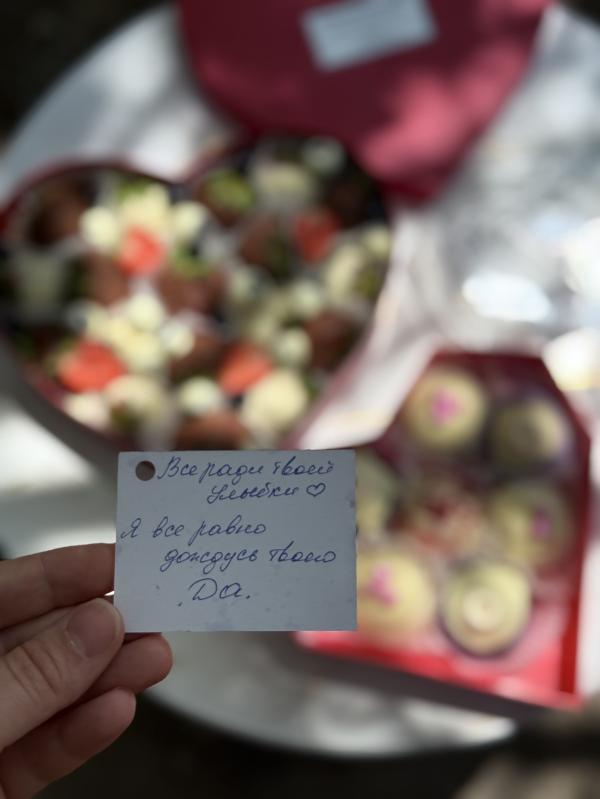 Все ради твоей
улыбки ♡
Я все равно
дождусь твоего
Да.